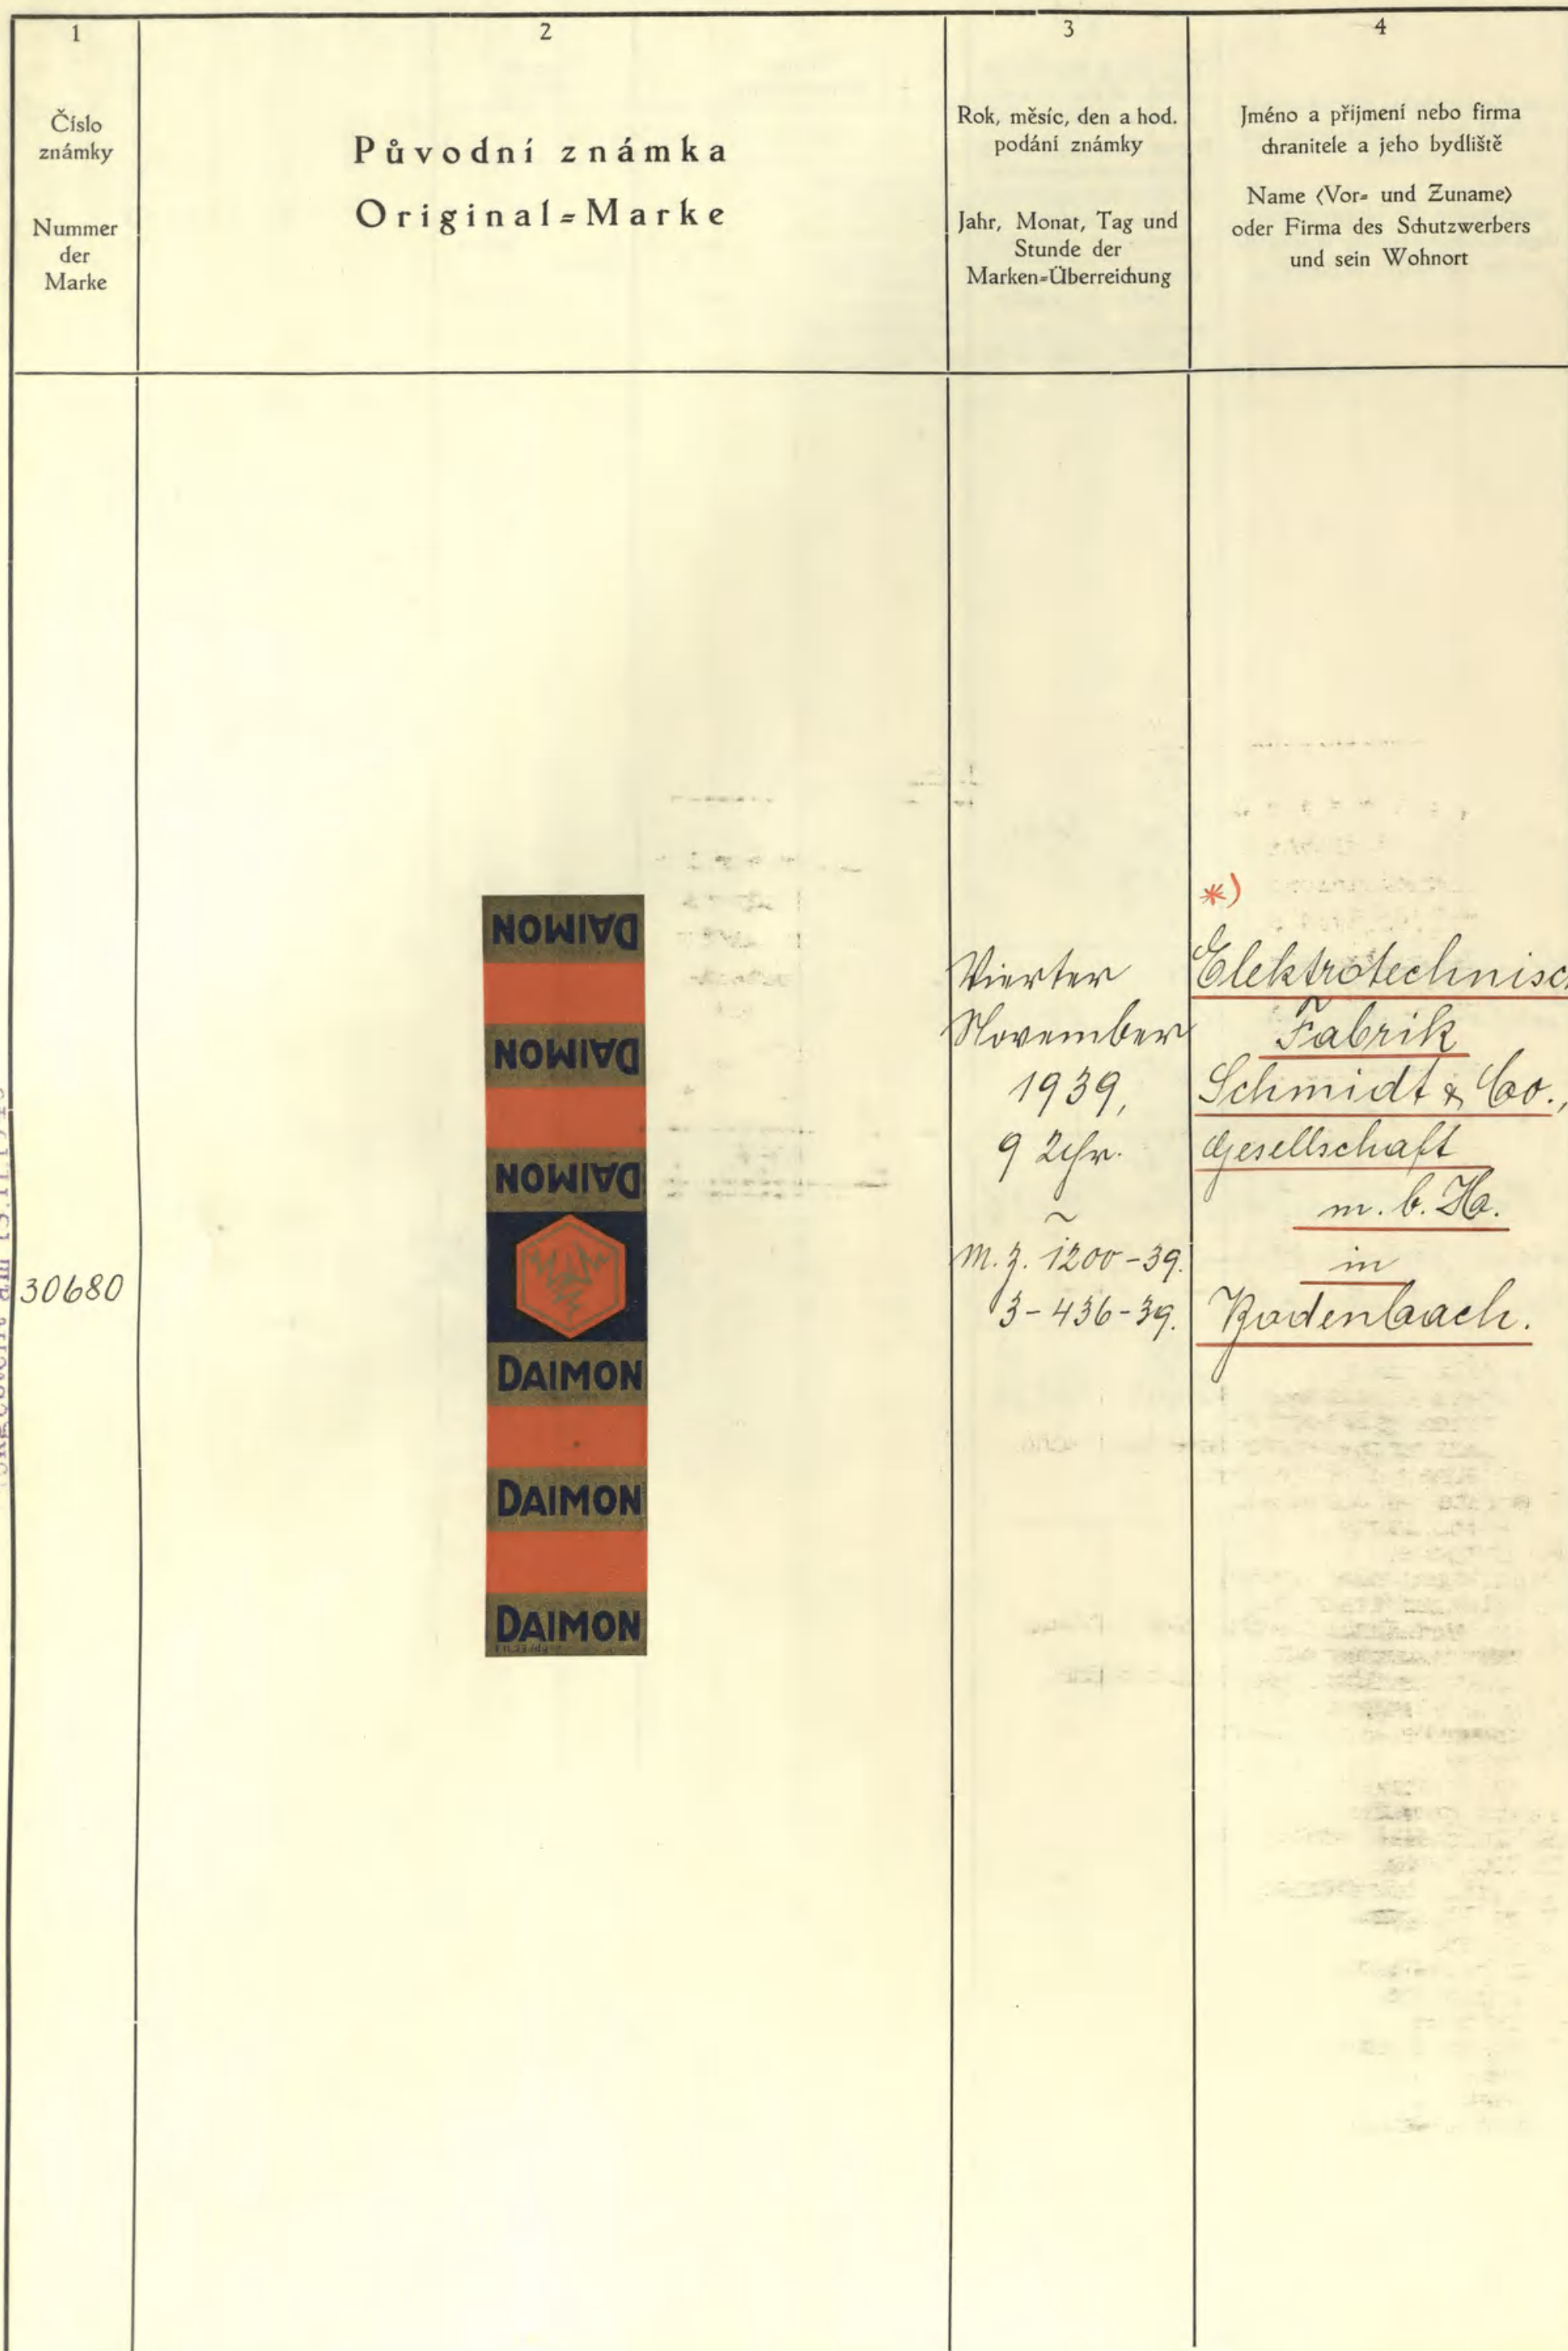 1
Číslo
známky
Nummer
der
Marke
2
Původní známka
Original=Marke
3
Rok, měsíc, den a hod.
podání známky
Jahr, Monat, Tag und
Stunde der
Marken=Überreichung
4
Jméno a přijmení nebo firma
chranitele a jeho bydliště
Name (Vor= und Zuname)
oder Firma des Schutzwerbers
und sein Wohnort
30680
DAIMON
DAIMON
DAIMON
DAIMON
DAIMON
DAIMON
Vierter
November
1939,
9 Uhr.
~
M. Z. 1200-39.
3-436-39.
*)
Elektrotechnisc
Fabrik
Schmidt & Co.,
Gesellschaft
m. b. H.
in
Bodenbach.